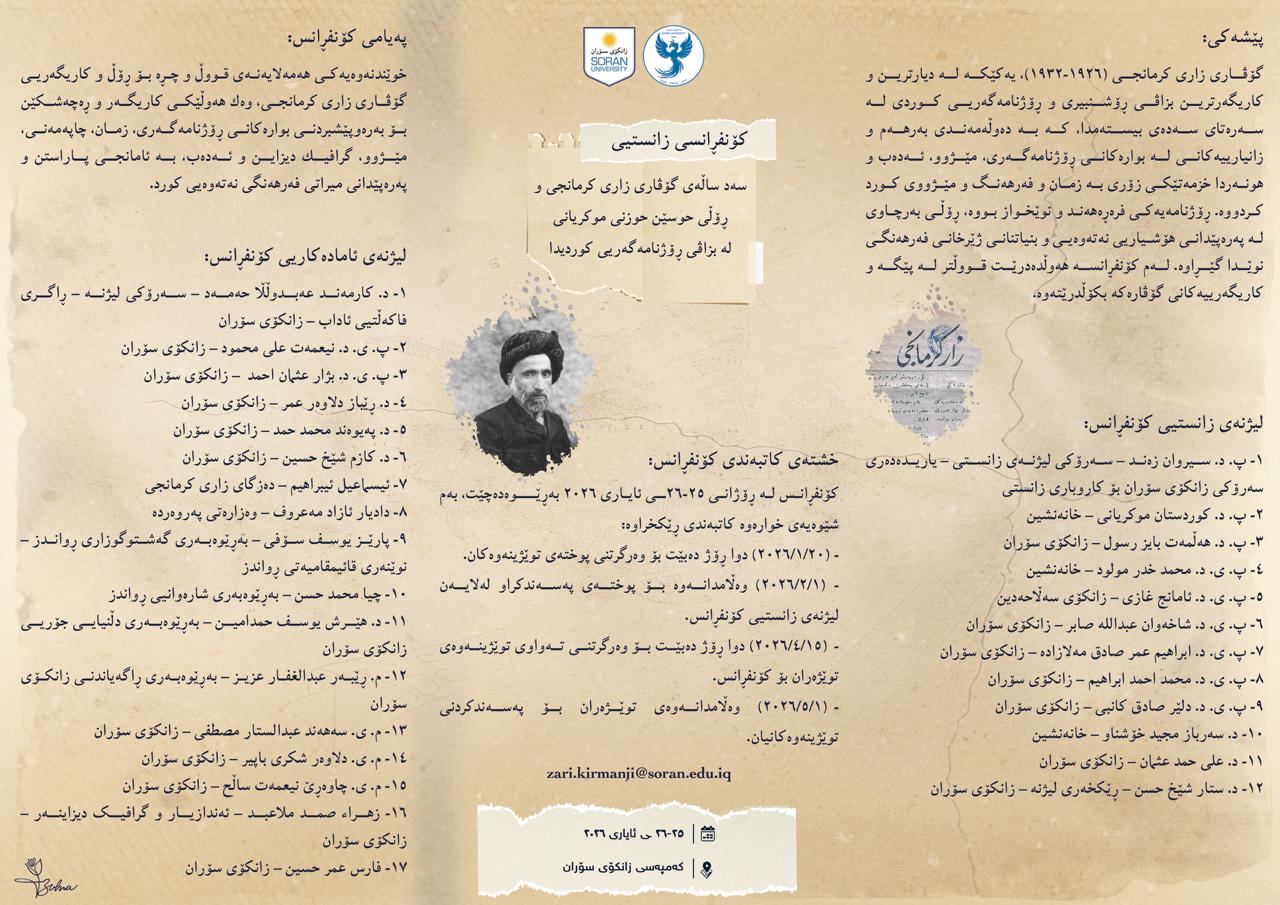 پێشەکی:
گۆڤاری زاری کرمانجی (١٩٢٦-١٩٣٢)، یەکێکە لە دیارترین و
کاریگەرترین بزاڤی ڕۆشنبیری و ڕۆژنامەگەریی کوردی لە
سەرەتای سەدەی بیستەمدا، کە بە دەوڵەمەندی بەرهەم و
زانیارییەکانی لە بوارەکانی ڕۆژنامەگەری، مێژوو، ئەدەب و
هونەردا خزمەتێکی زۆری بە زمان و فەرهەنگ و مێژووی کورد
کردووە. ڕۆژنامەیەکی فرەڕەهەند و نوێخواز بووە، ڕۆڵی بەرچاوی
لە پەرەپێدانی هۆشیاریی نەتەوەیی و بنیاتنانی ژێرخانی فەرهەنگی
نوێدا گێڕاوە. لەم کۆنفرانسە هەوڵدەدرێت قووڵتر لە پێگە و
کاریگەرییەکانی گۆڤارەکە بکۆڵدرێتەوە.
زارکرمانجی
لیژنەی زانستیی کۆنفڕانس:
١- پ. د. سیروان زەند – سەرۆکی لیژنەی زانستی – یاریدەدەری
سەرۆکی زانکۆی سۆران بۆ کاروباری زانستی
٢- پ. د. کوردستان موکریانی – خانەنشین
٣- پ. د. هەڵمەت بایز رسول – زانکۆی سۆران
٤- پ. ی. د. محمد خدر مولود – خانەنشین
٥- پ. ی. د. ئامانج غازی – زانکۆی سەڵاحەدین
٦- پ. ی. د. شاخەوان عبدالله صابر – زانکۆی سۆران
٧- پ. ی. د. ابراهیم عمر صادق مەلازادە – زانکۆی سۆران
٨- پ. ی. د. محمد احمد ابراهیم – زانکۆی سۆران
٩- پ. ی. د. دلێر صادق کانبی – زانکۆی سۆران
١٠- د. سەرباز مجید خۆشناو – خانەنشین
١١- د. علی حمد عثمان – زانکۆی سۆران
١٢- د. ستار شێخ حسن – ڕێکخەری لیژنە – زانکۆی سۆران
زانکۆی سۆران
SORAN
UNIVERSITY
کۆنفڕانسی زانستیی
سەد ساڵەی گۆڤاری زاری کرمانجی و
ڕۆڵی حوسێن حوزنی موکریانی
لە بزاڤی ڕۆژنامەگەریی کوردیدا
خشتەی کاتبەندی کۆنفڕانس:
کۆنفڕانس لە ڕۆژانی ٢٥-٢٦ـی ئایاری ٢٠٢٦ بەڕێـوەدەچێت، بەم
شێوەیەی خوارەوە کاتبەندی ڕێکخراوە:
- (٢٠٢٦/١/٢٠) دوا ڕۆژ دەبێت بۆ وەرگرتنی پوختەی توێژینەوەکان.
- (٢٠٢٦/٢/١) وەڵامدانەوە بۆ پوختەی پەسەندکراو لەلایەن
لیژنەی زانستیی کۆنفڕانس.
- (٢٠٢٦/٤/١٥) دوا ڕۆژ دەبێت بۆ وەرگرتنی تەواوی توێژینەوەی
توێژەران بۆ کۆنفڕانس.
- (٢٠٢٦/٥/١) وەڵامدانەوەی توێژەران بۆ پەسەندکردنی
توێژینەوەکانیان.
zari.kirmanji@soran.edu.iq
٢٥-٢٦ ـی ئایاری ٢٠٢٦
کەمپەسی زانکۆی سۆران
پەیامی کۆنفڕانس:
خوێندنەوەیەکی هەمەلایەنەی قووڵ و چڕە بۆ ڕۆڵ و کاریگەریی
گۆڤاری زاری کرمانجی، وەک هەوڵێکی کاریگەر و ڕەچەشکێن
بۆ بەرەوپێشبردنی بوارەکانی ڕۆژنامەگەری، زمان، چاپەمەنی،
مێژوو، گرافیک دیزاین و ئەدەب، بە ئامانجی پاراستن و
پەرەپێدانی میراتی فەرهەنگی نەتەوەیی کورد.
لیژنەی ئامادەکاریی کۆنفڕانس:
١- د. کارمەند عەبدوڵڵا حەمەد – سەرۆکی لیژنە – ڕاگری
فاکەڵتیی ئاداب – زانکۆی سۆران
٢- پ. ی. د. نیعمەت علی محمود – زانکۆی سۆران
٣- پ. ی. د. بژار عثمان احمد – زانکۆی سۆران
٤- د. ڕێباز دلاوەر عمر – زانکۆی سۆران
٥- د. پەیوەند محمد حمد – زانکۆی سۆران
٦- د. کازم شێخ حسین – زانکۆی سۆران
٧- ئیسماعیل ئیبراهیم – دەزگای زاری کرمانجی
٨- دادیار ئازاد مەعروف – وەزارەتی پەروەردە
٩- پارێز یوسف سۆفی – بەڕێوەبەری گەشتوگوزاری ڕواندز –
نوێنەری قائیمقامیەتی ڕواندز
١٠- چیا محمد حسن – بەڕێوەبەری شارەوانیی ڕواندز
١١- د. هێرش یوسف حمدامین – بەڕێوەبەری دڵنیایی جۆریی
زانکۆی سۆران
١٢- م. ڕێبەر عبدالغفار عزیز – بەڕێوەبەری ڕاگەیاندنی زانکۆی
سۆران
١٣- م. ی. سەهەند عبدالستار مصطفی – زانکۆی سۆران
١٤- م. ی. دلاوەر شکری باپیر – زانکۆی سۆران
١٥- م. ی. چاوەڕێ نیعمەت ساڵح – زانکۆی سۆران
١٦- زهراء صمد ملاعبد – ئەندازیار و گرافیک دیزاینەر –
زانکۆی سۆران
١٧- فارس عمر حسین – زانکۆی سۆران